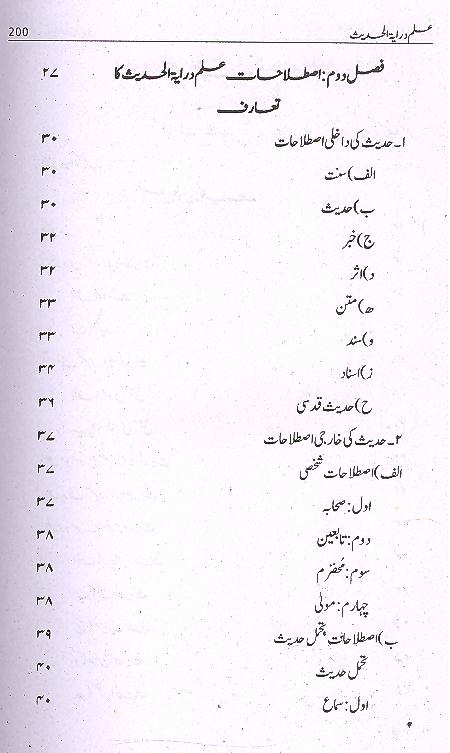 علم درایۃ الحدیث 200
فصل دوم: اصطلاحات علم درایۃ الحدیث کا ۲۷
تعارف
۱۔ حدیث کی داخلی اصطلاحات ۳۰
الف) سنت ۳۰
ب) حدیث ۳۰
ج) خبر ۳۲
د) اثر ۳۲
ھ) متن ۳۳
و) سند ۳۳
ز) اسناد ۳۴
ح) حدیث قدسی ۳۶
۲۔ حدیث کی خارجی اصطلاحات ۳۷
الف) اصطلاحات شخصی ۳۷
اول: صحابہ ۳۷
دوم: تابعین ۳۸
سوم: مخضرم ۳۸
چہارم: مولیٰ ۳۸
ب) اصطلاحات تحمل حدیث ۳۹
تحمل حدیث ۴۰
اول: سماع ۴۰